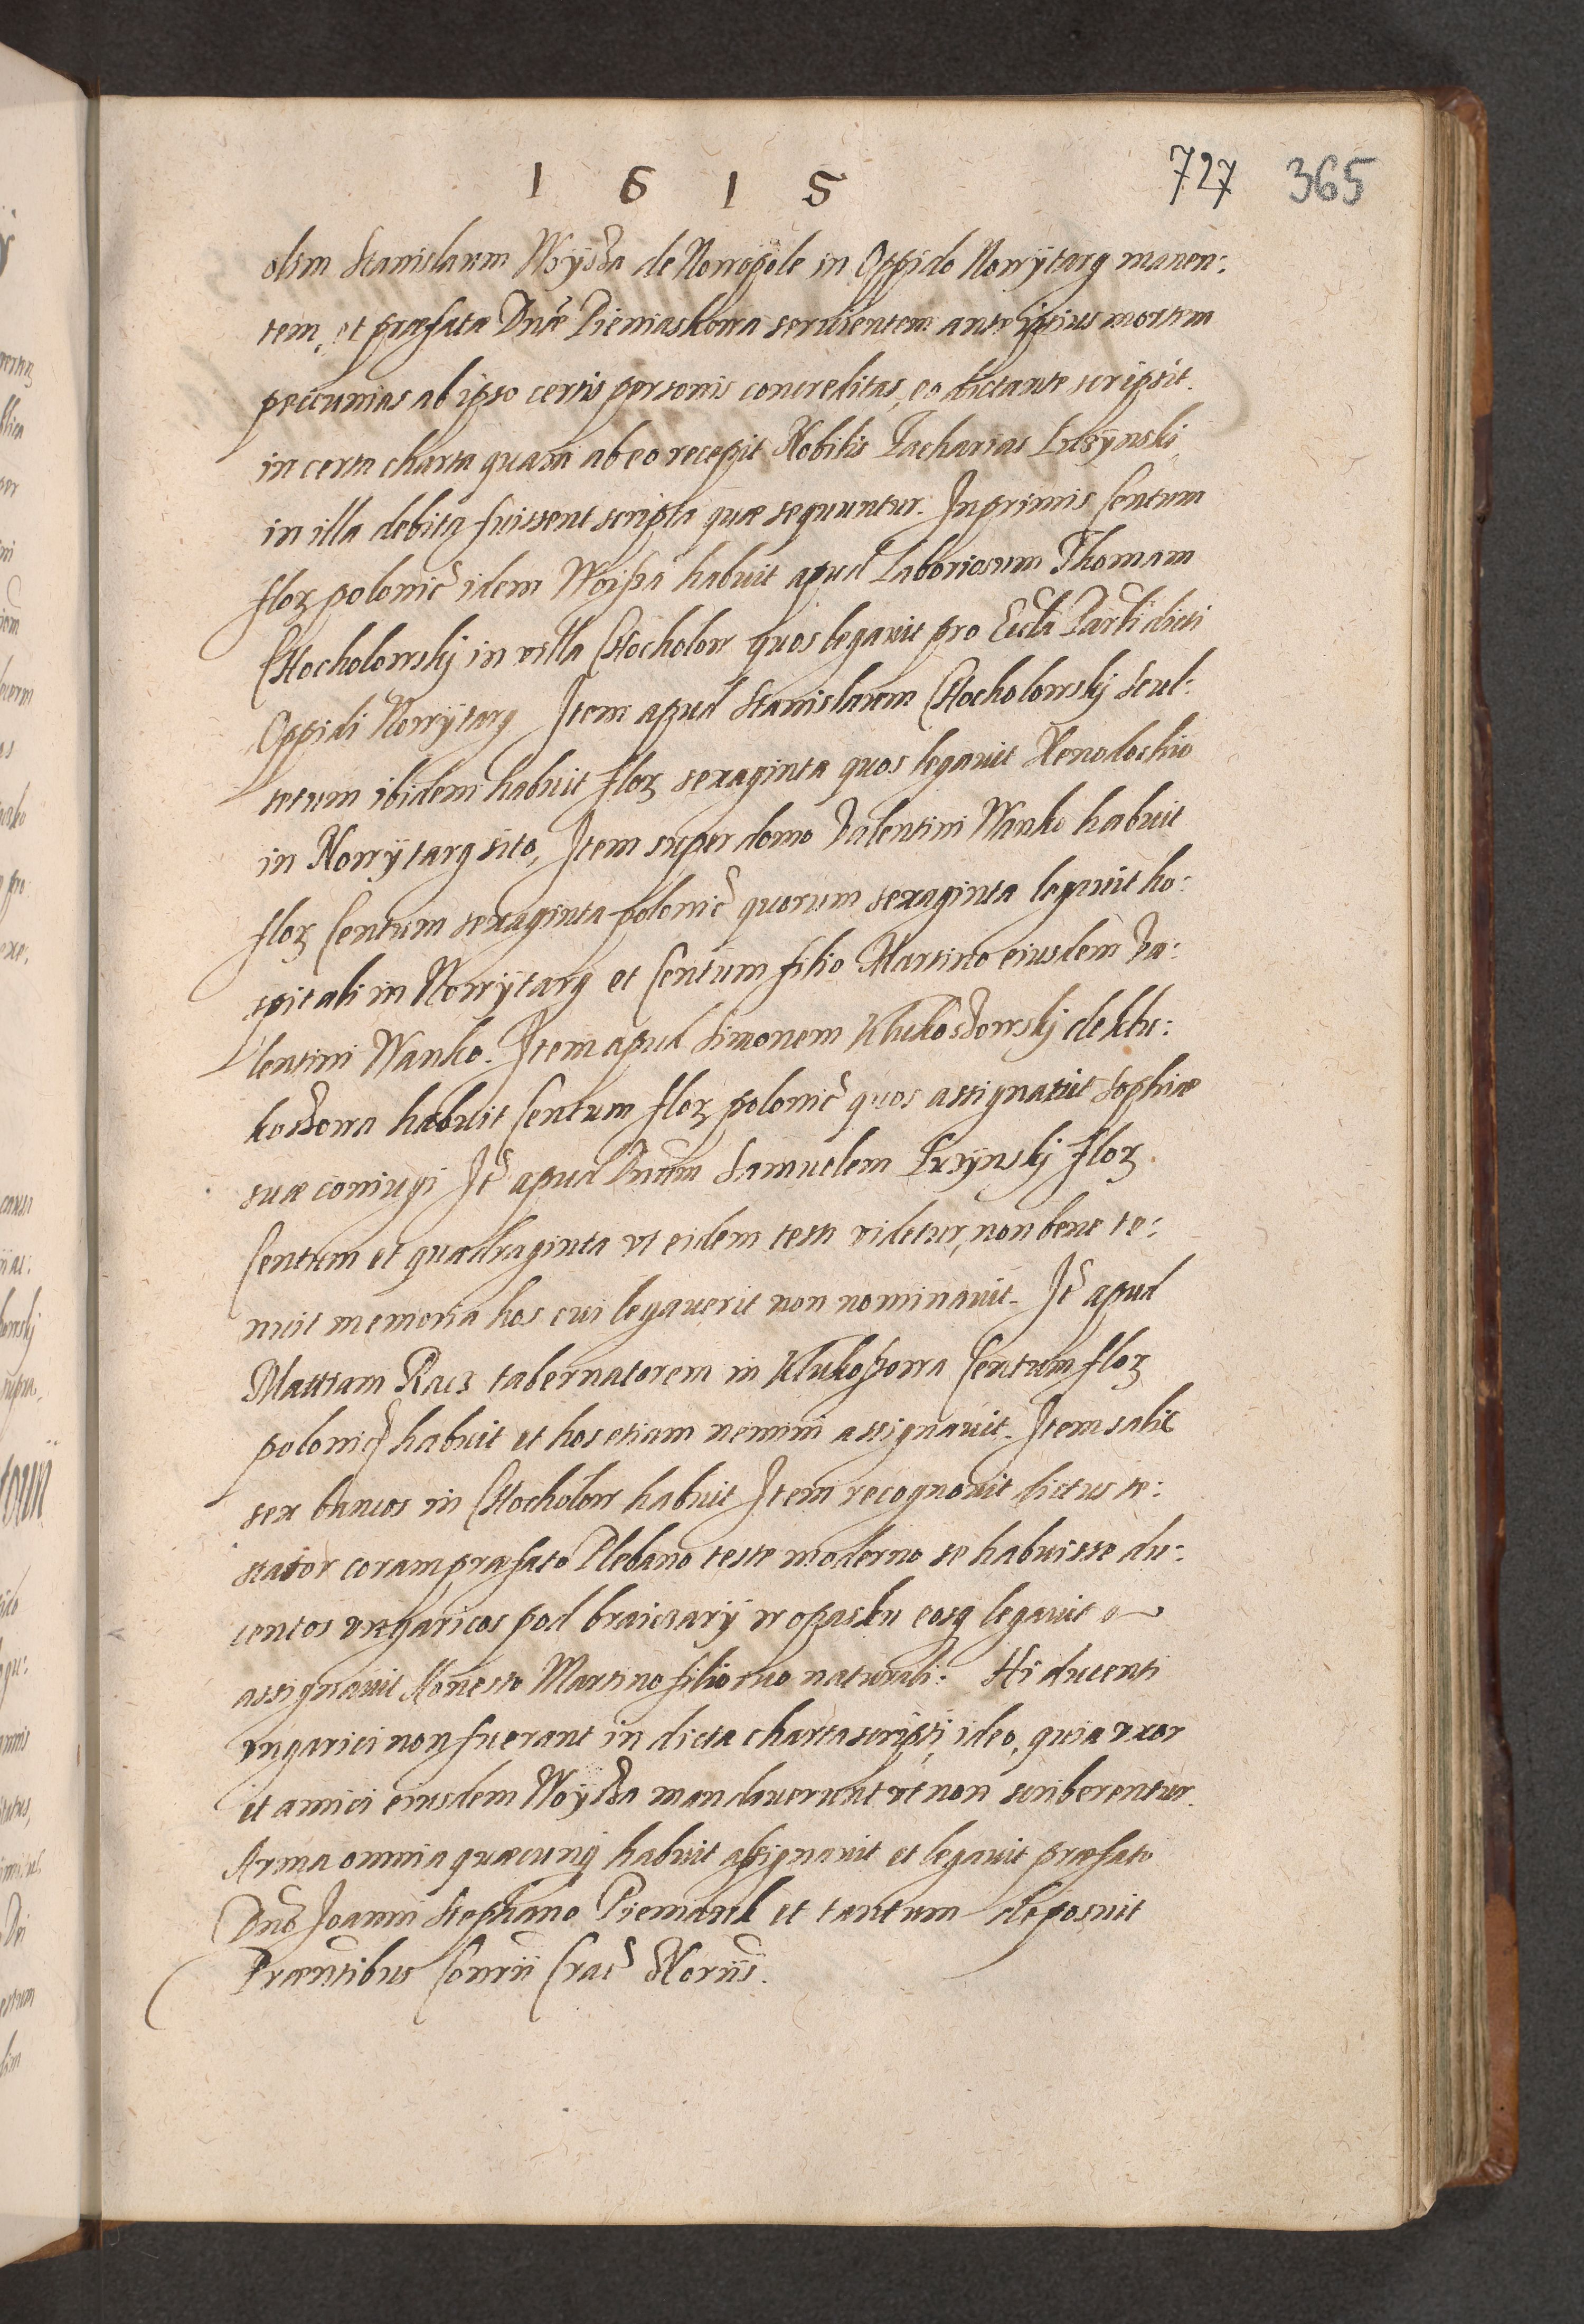 1 6 1 5 727 365
olim Stanislaum Woyßa de Nowopole in Oppido Nowÿtarg manen:
tem, et præfatæ Dnæ Pieniaskowa seruientem ante ipsius mortem
peccunias ab ipso certis personis concreditas, eo dictante scripsit.
in certa charta quam ab eo recepit Nobilis Zacharias
in illa debita fuissent scripta quæ sequuntur. Inprimis Centum
flor polonic idem Woißa habuit apud Laboriosum Thomam
Chocholowskj in villa Chocholow quos legauit pro Eccla Parli dicti
Oppidi Nowÿtarg Item apud Stanislaum Chocholowskj Scul:
tetum ibidem habuit flor sexaginta quos legauit Xenodochio
in Nowÿtarg sito, Item super domo Valentini Wanko habuit
flor Centum sexaginta polonic quorum sexaginta legauit ho:
spitali in Nowÿtarg et Centum filio Martino eiusdem Va:
lentini Wanko. Item apud Simonem Klukoßowskj de Klu:
koßowa habuit Centum flor polonic quos assignauit Sophiæ
suæ coniugi It apud Dnum Samuelem flor
Centum et quadraginta vt eidem testi videtur, non bene te:
nuit memoria hos cui legauerit non nominauit. It apud
Mattiam Racz tabernatorem in Klukoßowa Centum flor
polonic habuit et hos etiam nemini assignauit. Item salis
sex bancos in Chocholow habuit Item recognouit dictus te:
stator coram præfato Plebano teste moderno se habuisse du:
centos vngaricos pod braiczarÿ w opasku eosq legauit
assignauit Honesto Martino filio suo naturali: Hi ducenti
vngarici non fuerant in dicta charta scripti, ideo, quia vxor
et amici eiusdem Woÿßa mandauerunt vt non scriberentur.
Arma omnia quæcunq habuit assignauit et legauit præfato
Dno Joanni Stephano Pieniazek et tantum deposuit
Præntibus Conrii Crac Noriis.